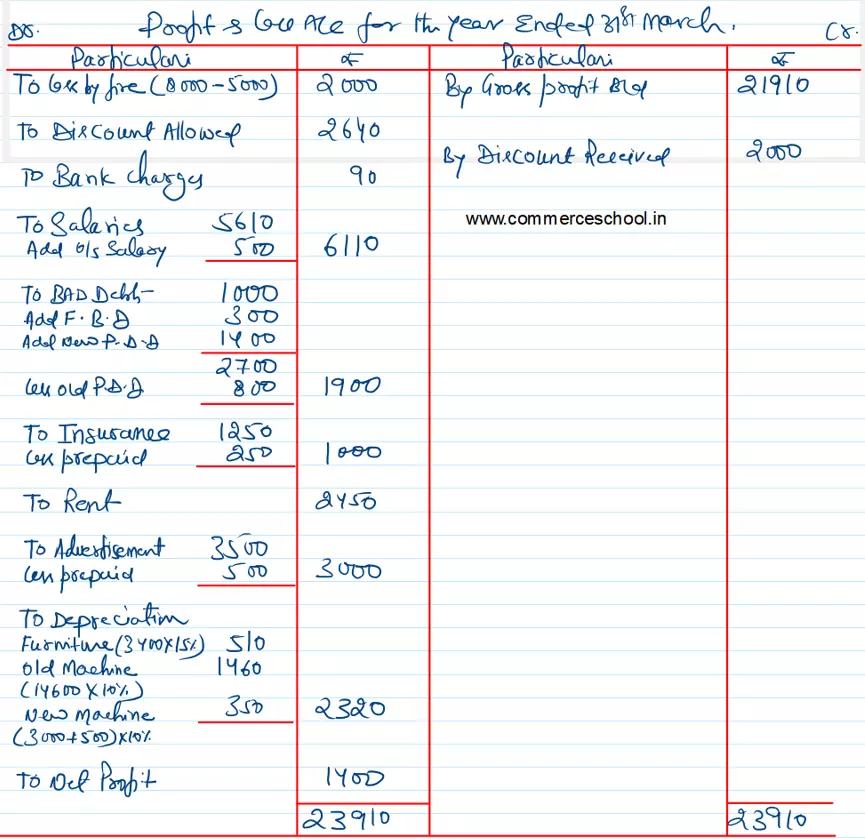 Dr. Profit & Loss A/c for the year Ended 31st March. Cr.
Particulars ₹ Particulars ₹
To Loss by fire (8000-5000) 2000 By Gross profit B/d 21910
To Discount Allowed 2640
By Discount Received 2000
To Bank charges 90
www.commerceschool.in
To Salaries 5610
Add o/s Salary 500 6110
To BAD Debts 1000
Add F.B.D 300
Add New P.D.D 1400
2700
Less old P.D.D 800 1900
To Insurance 1250
Less prepaid 250 1000
To Rent 2450
To Advertisement 3500
Less prepaid 500 3000
To Depreciation
Furniture (3400X15%) 510
Old Machine 1460
(14600 X 10%)
New Machine 350 2320
(3000+500)X10%
To Net Profit 1400
23910 23910